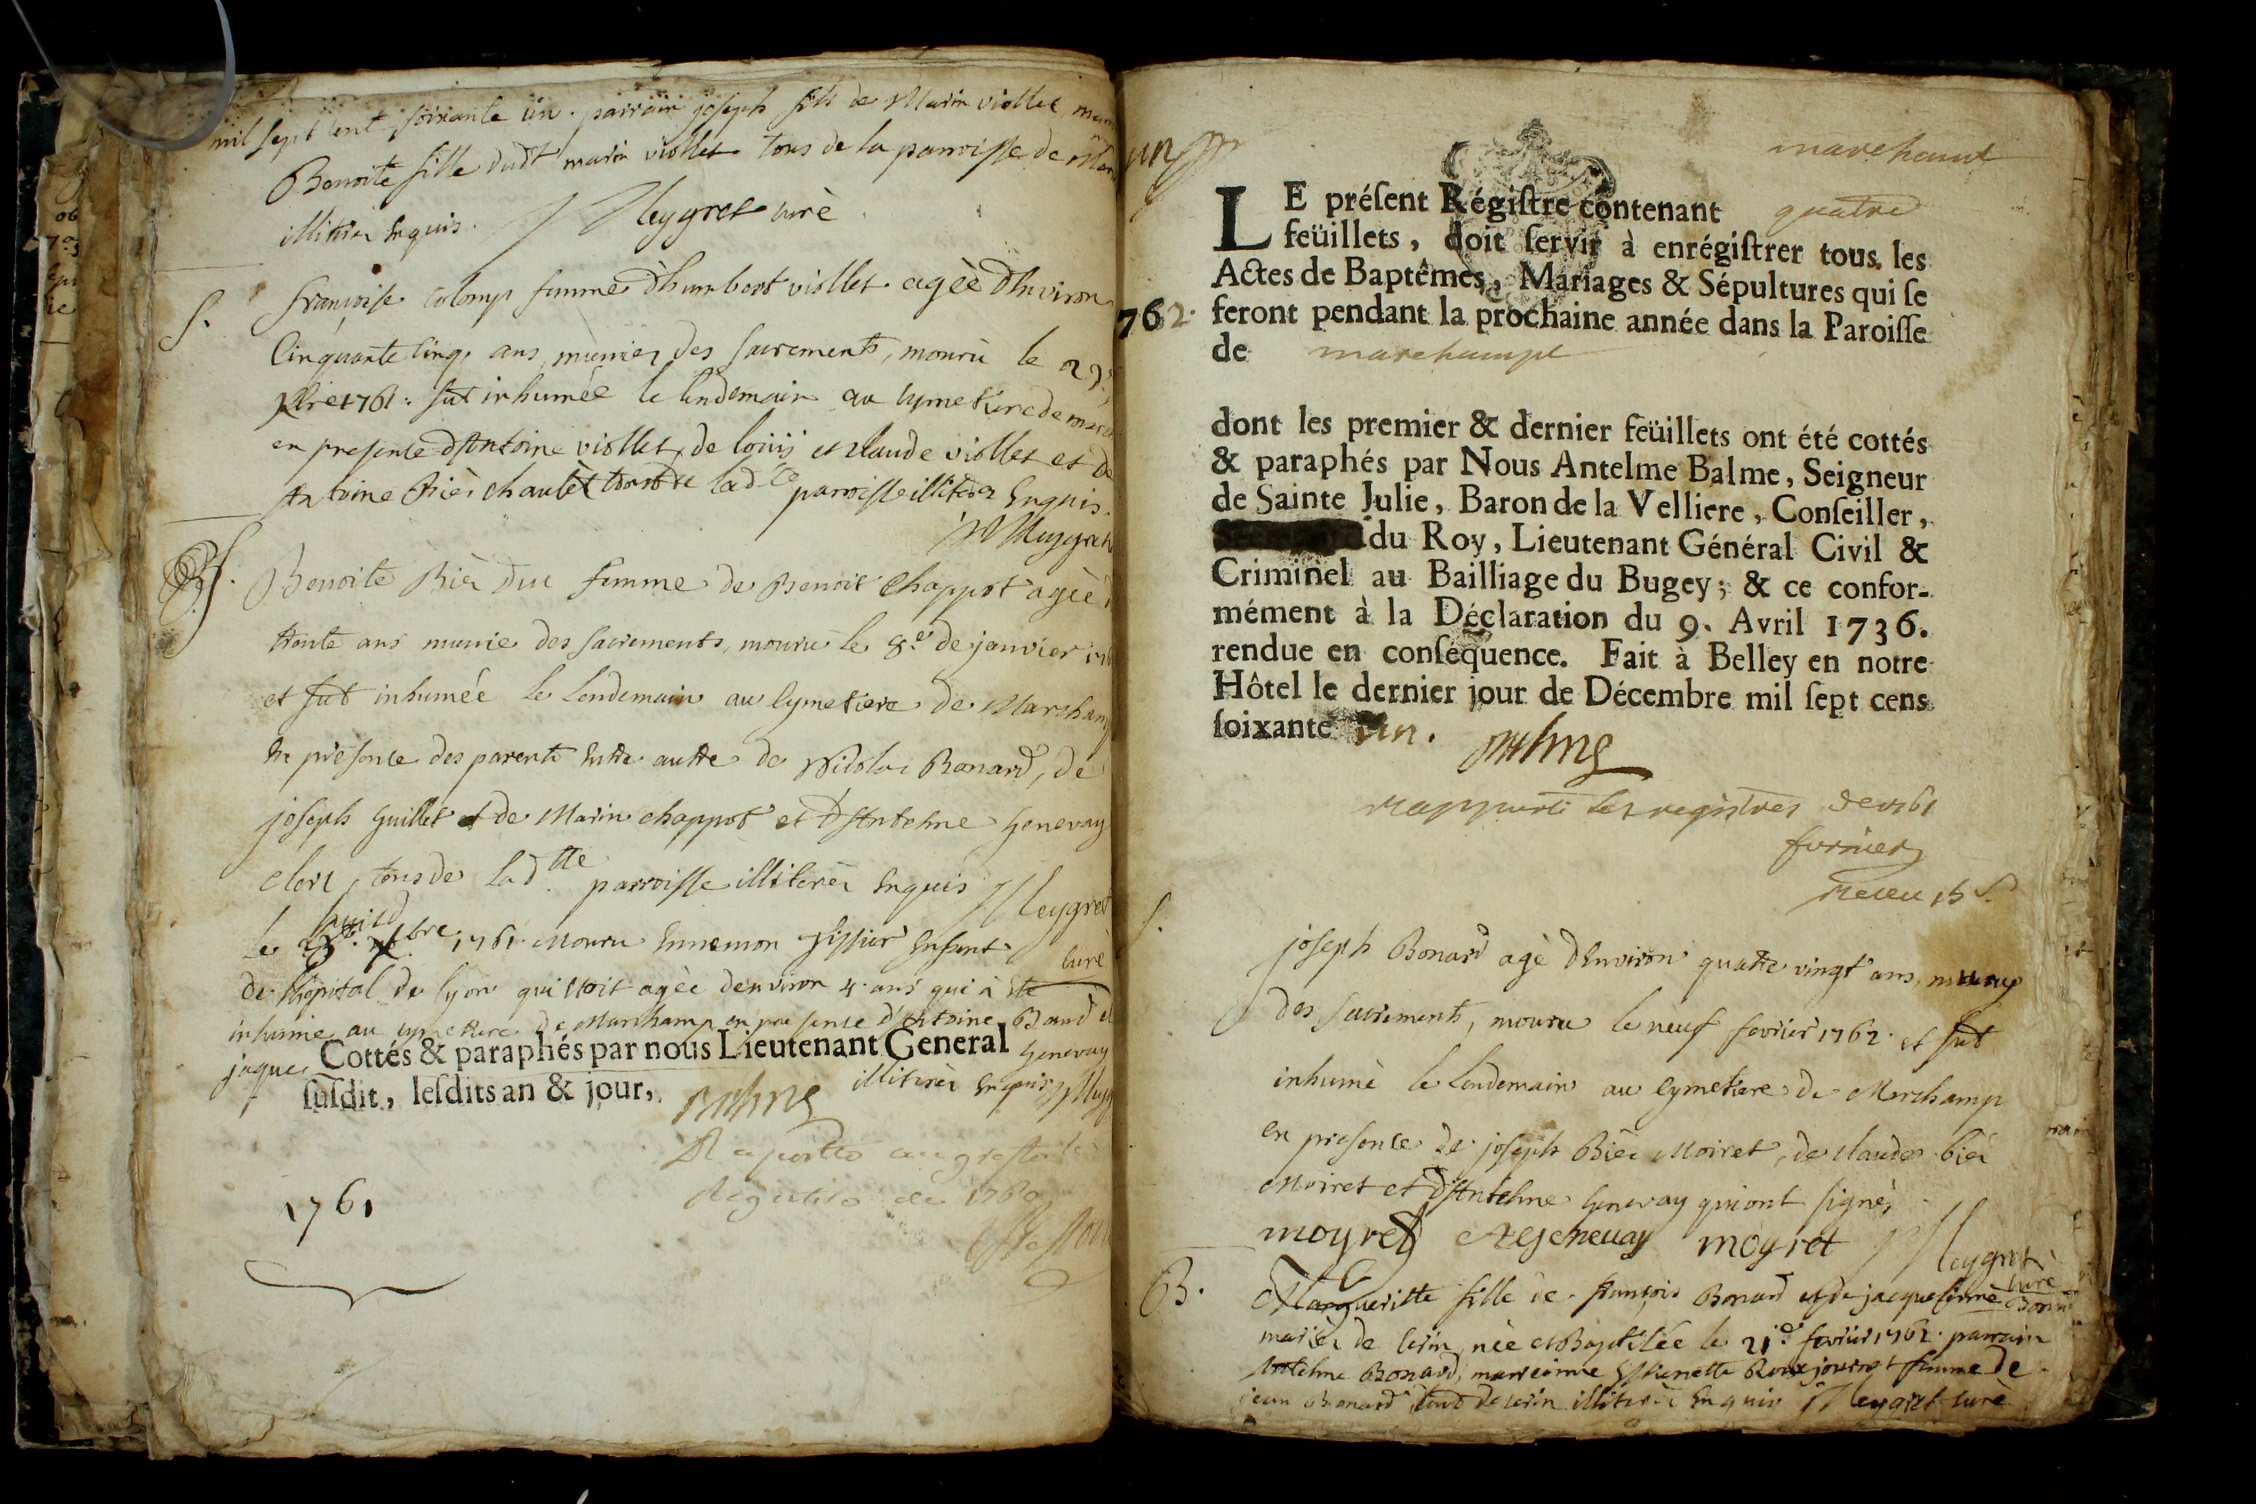 mil sept cent soixante un . parrain joseph fils de Marin viollet
Benoite fille dudt marin viollet tous de la parroisse de
illitérés Enquis . Neygret curè
S. françoise femme d'humbert viollet agèè d'Environ
Cinquante cinq ans munies des sacrements, mourù le
1761 : fut inhumèe le lendemain au cymetiere de
en presence d'Antoine viollet, de loüis et claude viollet et de
Antoine Biér chaulet tous de ladte parroisse illitérés Enquis.
Neygret
S. Benoite Bièr duc femme de Benoit Chappot agèè
trente ans munie des sacrements, mouru le 8e de janvier
et fut inhumèe le lendemain au Cymetiere de Marchamp
En presence des parents Entre autre de Nicolas Bonard, de
joseph Guillet et de Marin chappot et d'Antelme Genevay
clerc, tous de ladtte parroisse illiterés Enquis Neygret
curè
le huict bre 1761 Mouru Ennemon Enfant
de l'hôpital de lyon qui Etoit agèe denviron 4 ans qui à Ete
inhumé au cymettiere de Marchamp en presence d'Antoine Bonard et
jaques Genevay
Cottés & paraphés par nous Lieutenant General
illiterés Enquis
ſuſdit, leſdits an & jour,
Raporttés au greffe les
Registres de 1760
1761
marchamt
un
LE préſent Régiſtre contenant quatre
feüillets, doit ſervir à enrégiſtrer tous les
Actes de Baptêmes, Mariages & Sépultures qui ſe
762. feront pendant la prochaine année dans la Paroiſſe
de marchampt
dont les premier & dernier feüillets ont été cottés
& paraphés par Nous Antelme Balme, Seigneur
de Sainte Julie, Baron de la Velliere, Conſeiller,
du Roy, Lieutenant Général Civil &
Criminel au Bailliage du Bugey; & ce confor-
mément à la Déclaration du 9. Avril 1736.
rendue en conſéquence. Fait à Belley en notre
Hôtel le dernier jour de Décembre mil ſept cens
ſoixante un.
Rapporté les registres de 1761
Receu 15 s.
S. joseph Bonard agè d'Environ quatre vingt ans, muny
des sacrements, mouru le neuf fevrier 1762. et fut
inhumè le lendemain au Cymetiere de Marchamp
en presence de joseph Bièr Moiret, de claude bièr
Moiret et d'Antelme Genevay qui ont signès
moyret Genevay moyret Neygret
curè
B. Margueritte fille de françois Bonard et de jacqueline Bonard
mariés de Cerin, nèe et Baptisèe le 21e fevrier 1762. parrain
Antelme Bonard, marreinne Estienette Roux jouvent femme de
jean Bonard, tous de Cerin illiterés Enquis Neygret curè